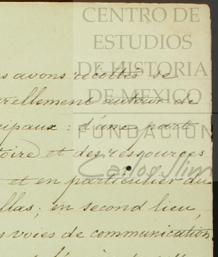 CENTRO DE
ESTUDIOS
DE HISTORIA
DE MEXICO
FUNDACIÓN
Carlos Slim
s avons récoltés se
urellement autour de
cipaux: d'une part
toire et des ressources
et en particulier du
llas; en second lieu,
s voies de communication